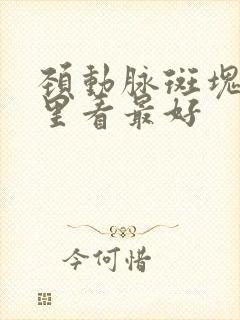 颈動脉斑塊
里看最好
今何惜